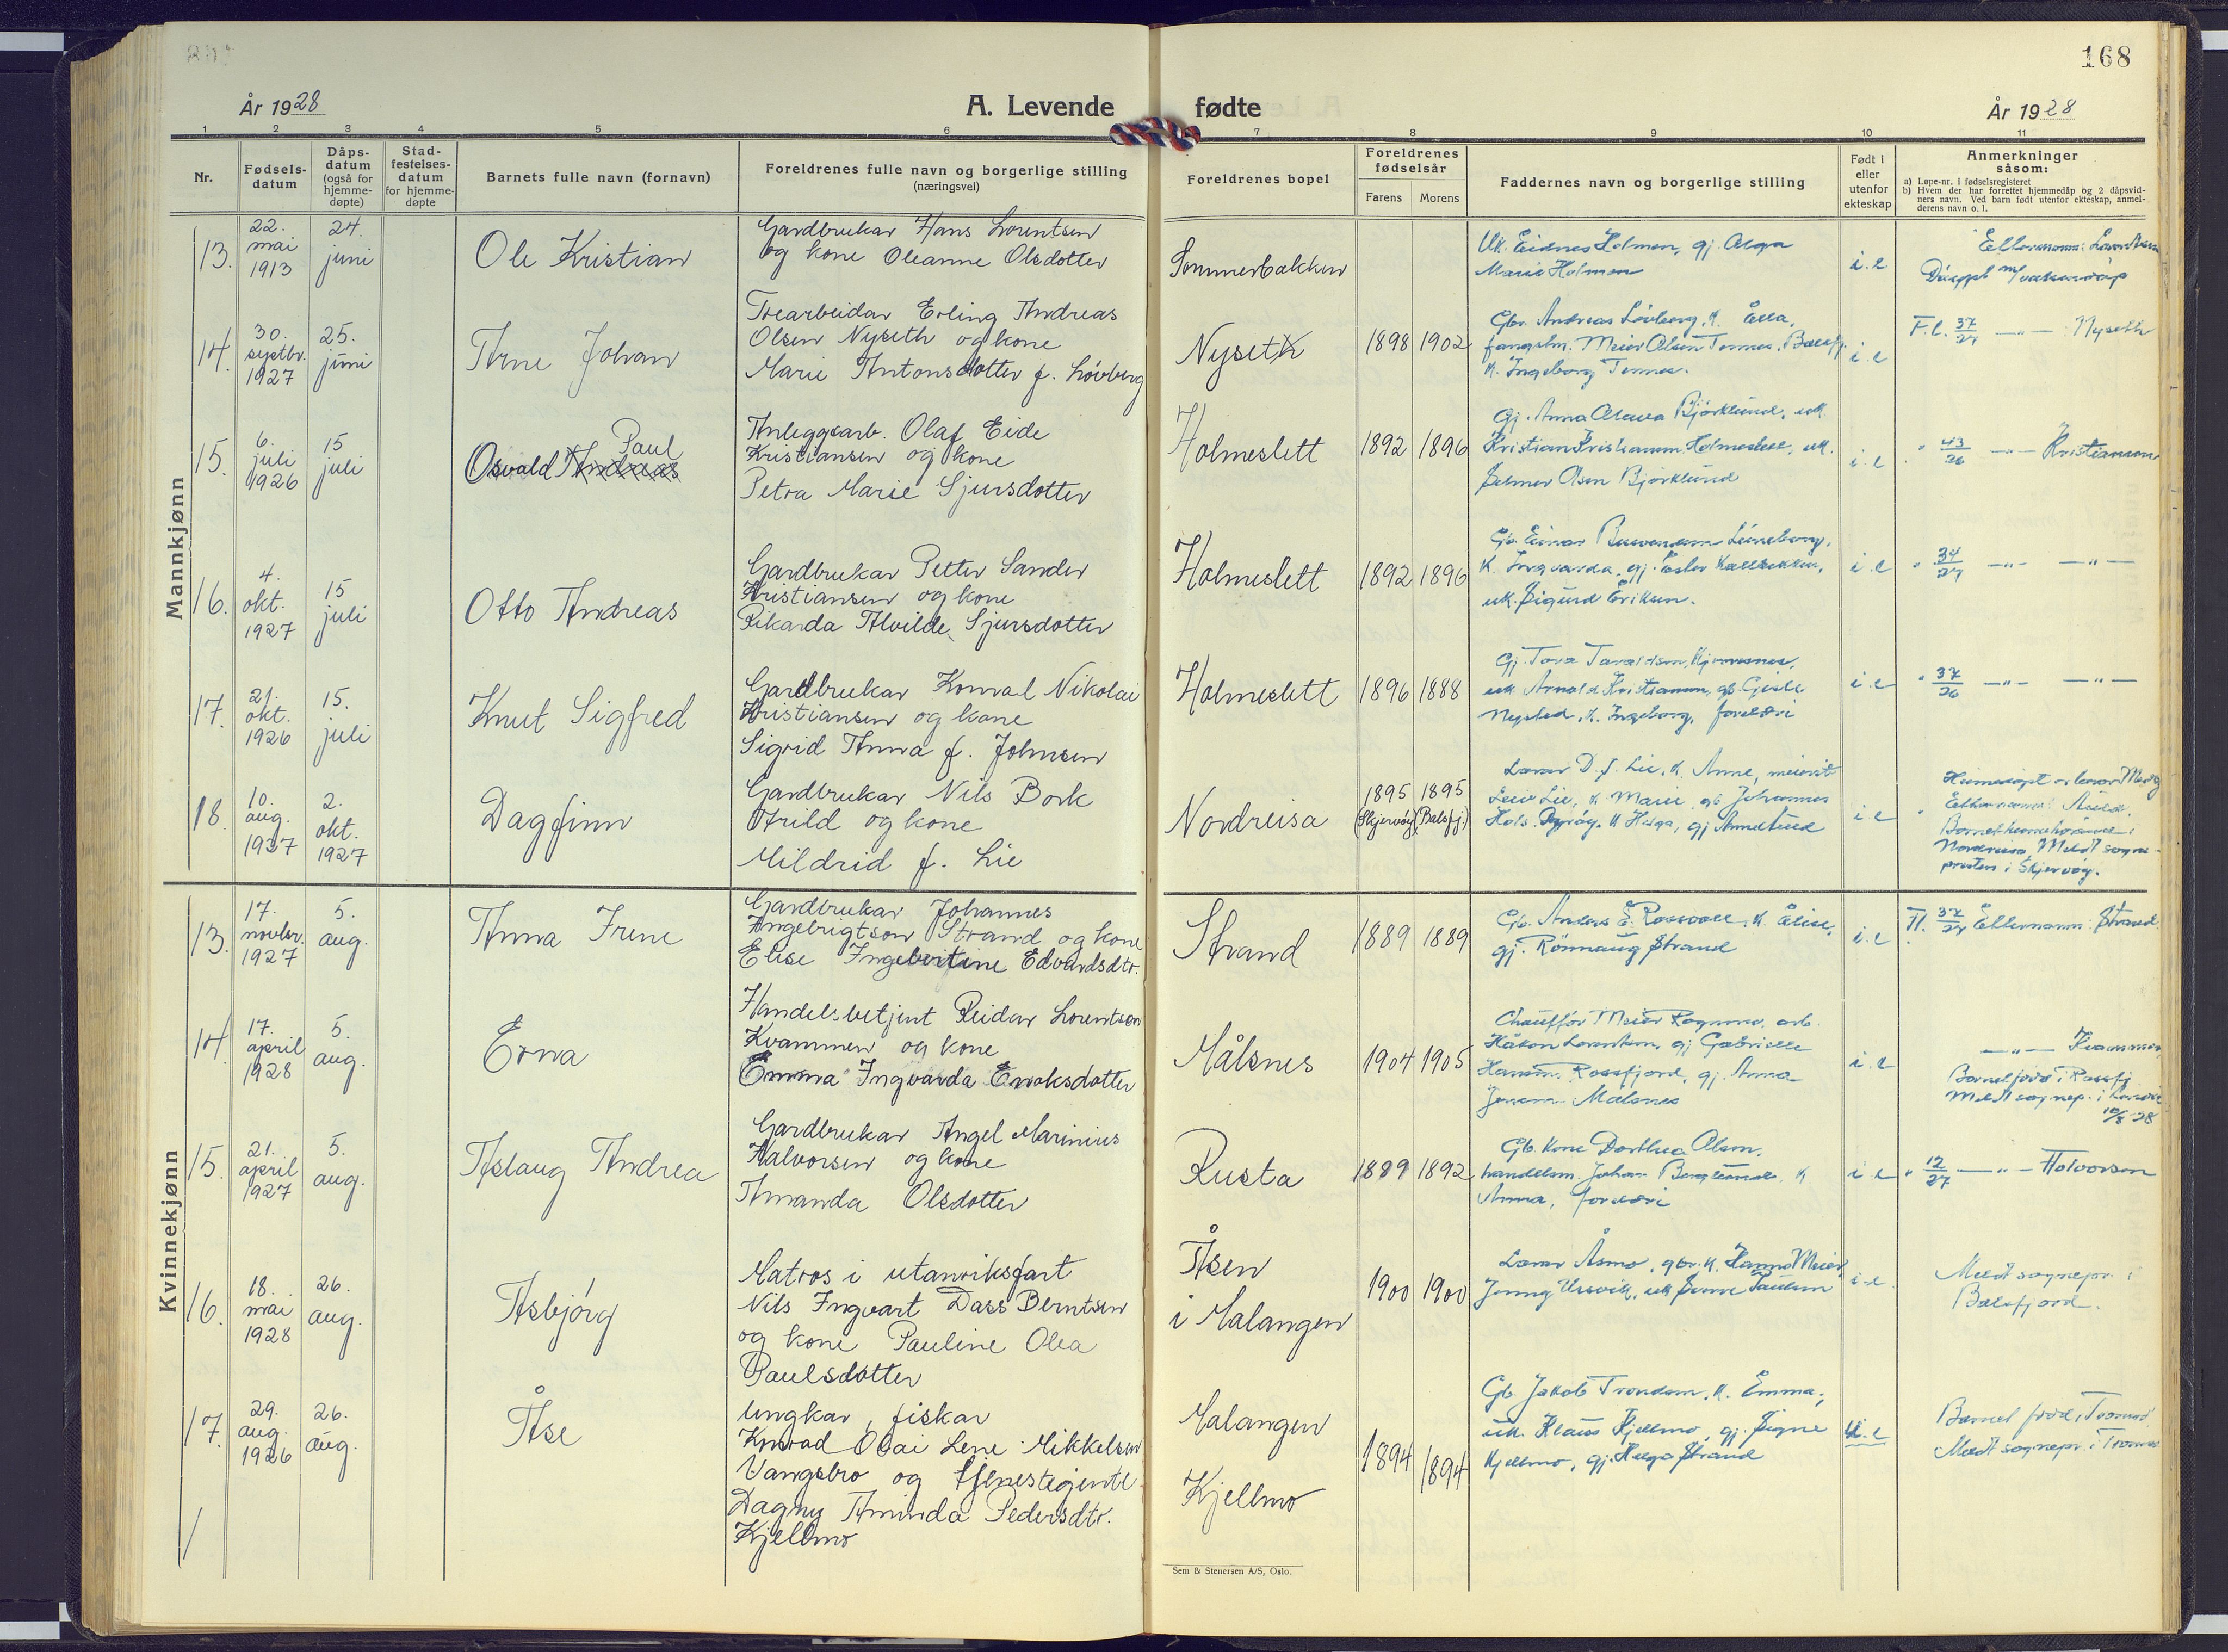 168
År 1928
A. Levende fødte
År 1928
1 2 3 4 5 6 7 8 9 10 11
Nr.
Fødsels-
datum
Dåps-
datum
(også for
hjemme-
døpte)
Stad-
festelses-
datum
for hjemme-
døpte
Barnets fulle navn (fornavn)
Foreldrenes fulle navn og borgerlige stilling
(næringsvei)
Foreldrenes bopel
Foreldrenes
fødselsår
Farens Morens
Faddernes navn og borgerlige stilling
Født i
eller
utenfor
ekteskap
Anmerkninger
såsom:
a) Løpe-nr. i fødselsregisteret
b) Hvem der har forrettet hjemmedåp og 2 dåpsvid-
ners navn. Ved barn født utenfor ekteskap, anmel-
derens navn o. l.
Mannkjønn
13.
22.
mai
1913
24.
juni
Ole Kristian
Gardbrukar Hans Lorentsen
og kone Oleanne Olsdotter
Sommerbakken
Uk. Eidnes Holmen, gj. Olga
Marie Holmen
i.e
14.
30.
septbr.
1927
25.
juni
Arne Johan
Trearbeidar Erling Andreas
Olsen Nyseth og kone
Marie Antonsdotter f. Lövberg
Nyseth
1898 1902
Gbr. Andreas Lövberg, K. Ella,
fangstm. Meier Olsen Tennes, Balsfj.
K. Ingeborg Tennes.
i.e
F.l. 37/27 —„— Nyseth
15.
6.
juli
1926
15
juli
Paul
Osvald Andreas
Anleggsarb. Olaf Eide
Kristiansen og kone
Petra Marie Sjursdotter
Holmeslett
1892 1896
Gj. Anna Björklund, uk.
Kristian Kristiansen Holmeslett, uk.
Selmer Olsen Björklund
i.e
" 43/26 —„— Kristiansen
16.
4.
okt.
1927
15
juli
Otto Andreas
Gardbrukar Petter Sander
Kristiansen og kone
Rikarda Alvilde Sjursdotter
Holmeslett
1892 1896
Gb. Einar
K. Ingvarda, gj. Ester
uk. Sigurd Eriksen.
i.e
" 34/27 —„— —„—
17.
21.
okt.
1926
15.
juli
Knut Sigfred
Gardbrukar Konrad Nikolai
Kristiansen og kone
Sigrid Anna f. Johnsen
Holmeslett
1896 1888
Gj. Tora
uk Arnold Kristiansen, gb.
Nysted, K. Ingeborg, foreldri
i.e
" 37/26 —„— —„—
18.
10.
aug.
1927
2.
okt.
1927
Dagfinn
Gardbrukar Nils Bork
Arild og kone
Mildrid f. Lie
Nordreisa
1895 1895
(Skjervöy) (Balsfj.)
Lærar D. J. Lie, K. Anne, meierist
Leiv Lie, K. Marie, gb. Johannes
K Helga, gj
i.e
Heimedöpt av lærar
Etternamn: Arild.
Barnet heimehörande i
Nordreisa. Meldt sogne-
presten i Skjervöy.
Kvinnekjønn
13.
17.
novbr.
1927
5.
aug.
Anna Irene
Gardbrukar Johannes
Angelbrigtson Strand og kone
Elise Ingebertine Edvardsdtr.
Strand
1889 1889
Gb. Anders E. Rossvoll, K. Elise,
gj. Rönnaug Strand
i.e
Fl. 37/27 Etternamn: Strand
14.
17.
april
1928
5.
aug.
Erna
Handelsbetjent Reidar Lorentsen
Kvammen og kone
Emma Ingvarda Enoksdotter
Målsnes
1904 1905
Chaufför Meier Ragnar, arb.
Håkon Lorentsen, gj Gabrielle
Hansen Rossfjord, gj. Anna
Jensen Målsnes
i.e
—„— Kvammen
Barnet född i Rossfj
Meldt sognep. i Lenvik
10/8 28
15.
21.
april
1927
5.
aug.
Aslaug Andrea
Gardbrukar Angel Marinius
Halvorsen og kone
Amanda Olsdotter
Rusta
1889 1892
Gb. kone Dorthea Olsen,
handelsm. Johan K
Anna, foreldri
i e
" 12/27 —„— Halvorsen
16.
18.
mai
1928
26.
aug.
Asbjörg
Matros i utanriksfart
Nils Ingvart Dass Berntsen
og kone Pauline Olea
Paulsdotter
Åsen
i Malangen
1900 1900
Lærar Åsmo, gbr. K. Hanna Meier,
Jenny
i.e.
Meldt sognepr. i
Balsfjord.
17.
29.
aug.
1926
26.
aug.
Åse
Ungkar, fiskar
Konrad Olai Lene Mikkelsen
Vangsbro og tjenestegjente
Dagny Aminda Pedersdtr.
Kjellmo
Malangen
Kjellmo
1894 1894
Gb. Jakob Trondsen, K. Emma,
uk. Klaus Kjellmo, gj. Signe
Kjellmo, gj. Helga Strand
u.e
Barnet född i Tromsö
Meldt sognepr. i Tromsö
Sem & Stenersen A/S, Oslo.